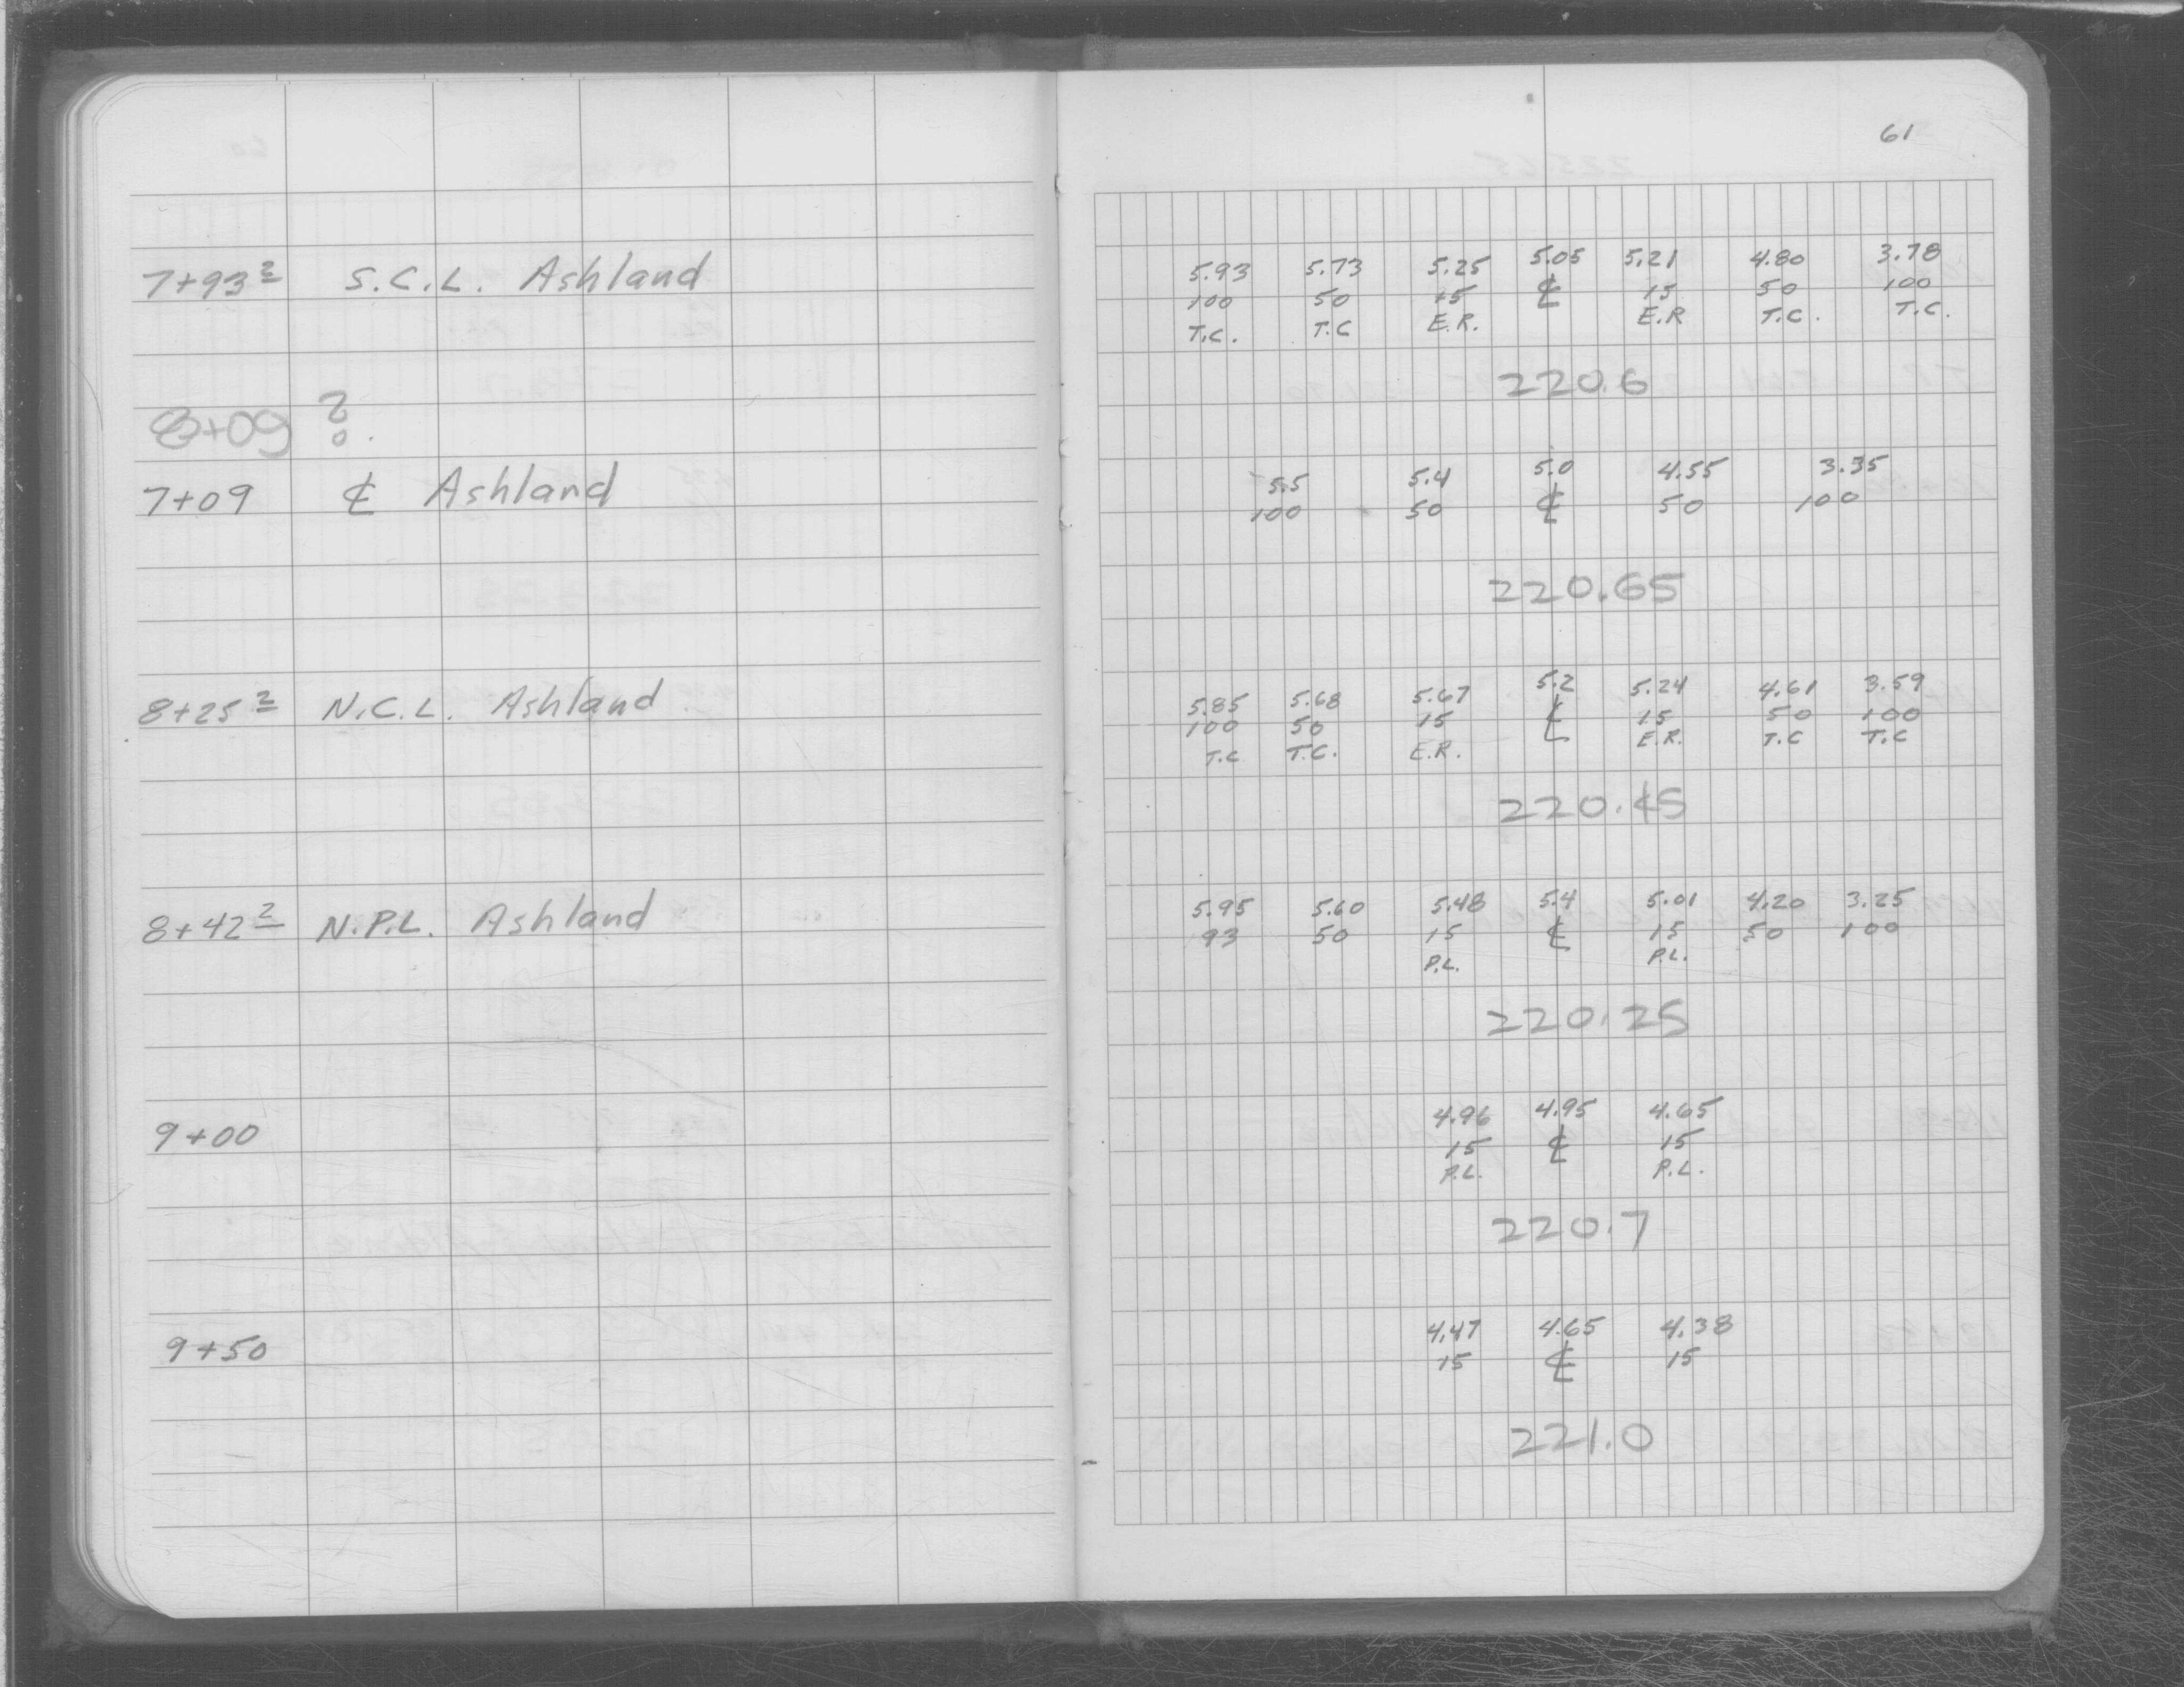 61
7+93² S.C.L. Ashland 5.93 5.73 5.25 5.05 5.21 4.80 3.78
100 50 15 ℄ 15 50 100
T.C. T.C E.R. E.R T.C. T.C.
220.6
8+09 ?
7+09 ℄ Ashland 5.5 5.4 5.0 4.55 3.35
100 50 ℄ 50 100
220.65
8+25² N.C.L. Ashland 5.85 5.68 5.67 5.2 5.24 4.61 3.59
100 50 15 ℄ 15 50 100
T.C T.C. E.R. E.R. T.C T.C
220.45
8+42² N.P.L. Ashland 5.95 5.60 5.48 5.4 5.01 4.20 3.25
93 50 15 ℄ 15 50 100
P.L. P.L.
220.25
9+00 4.96 4.95 4.65
15 ℄ 15
P.L. P.L.
220.7
9+50 4.47 4.65 4.38
15 ℄ 15
221.0